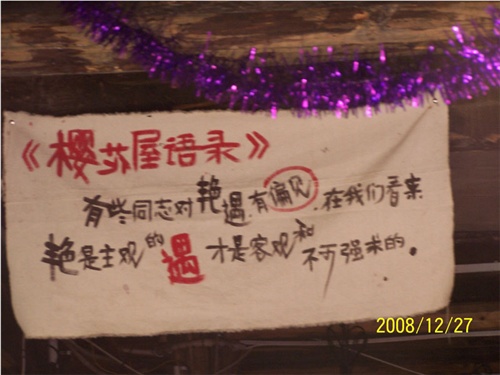 《樱花屋语录》
有些同志对艳遇有偏见.在我们看来
艳是主观的遇才是客观和不可强求的。
2008/12/27